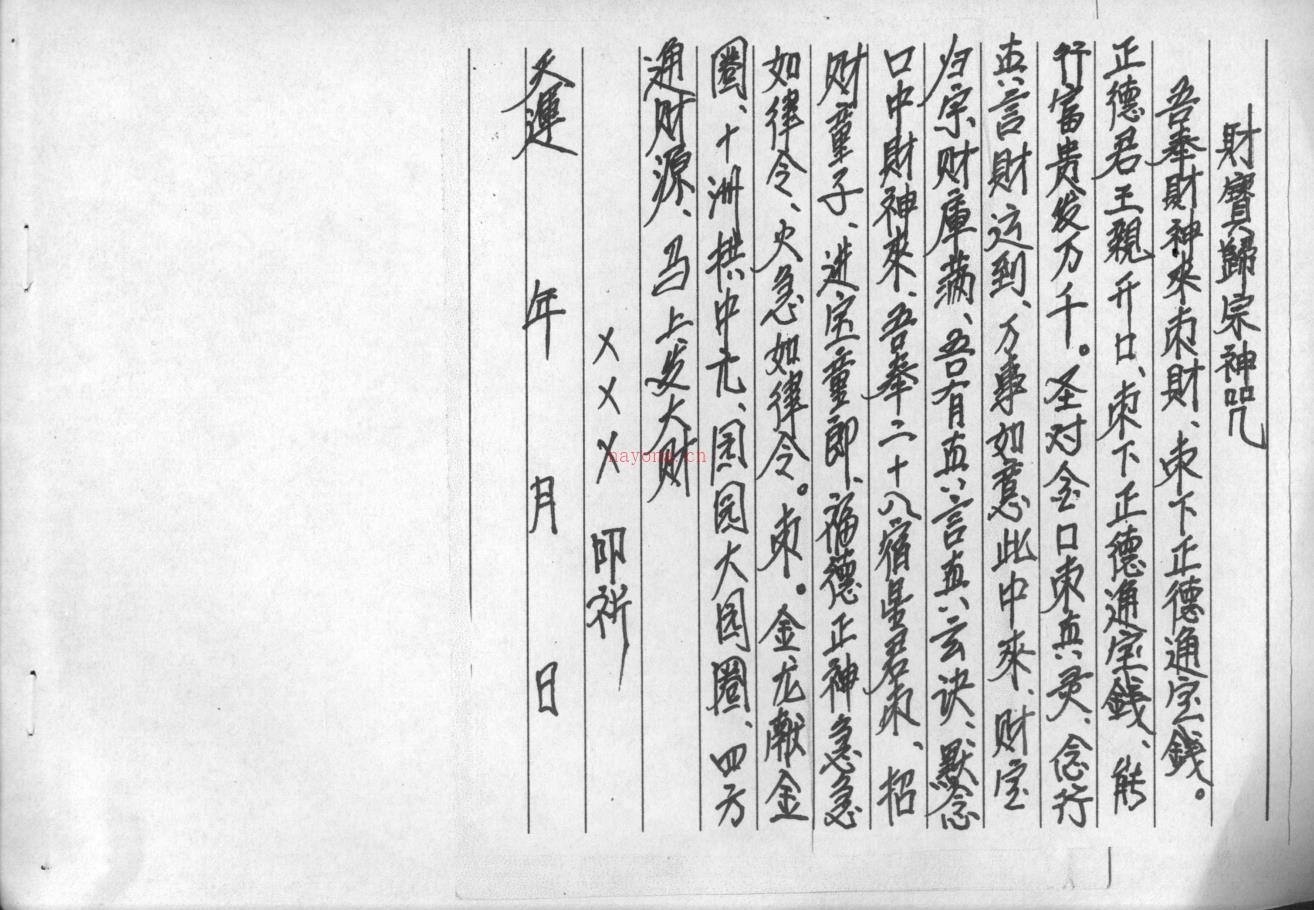 財寶歸宗神咒
吾奉財神來朿財、朿下正德通宝錢。
正德君王親开口、朿下正德通宝錢、能
行富贵发万千。圣对金口朿真灵、念行
真言財运到、万事如意此中來、财宝
归宗财庫满、吾有真言真言诀、默念
口中財神來、吾奉二十八宿星君朿、招
财童子、进宝童郎、福德正神急急
如律令、火急如律令。朿。金龙献金
圈、十洲拱中元、园园大园圈、四方
通财源、马上发大财
××× 叩祈
天運 年 月 日
nayona.cn